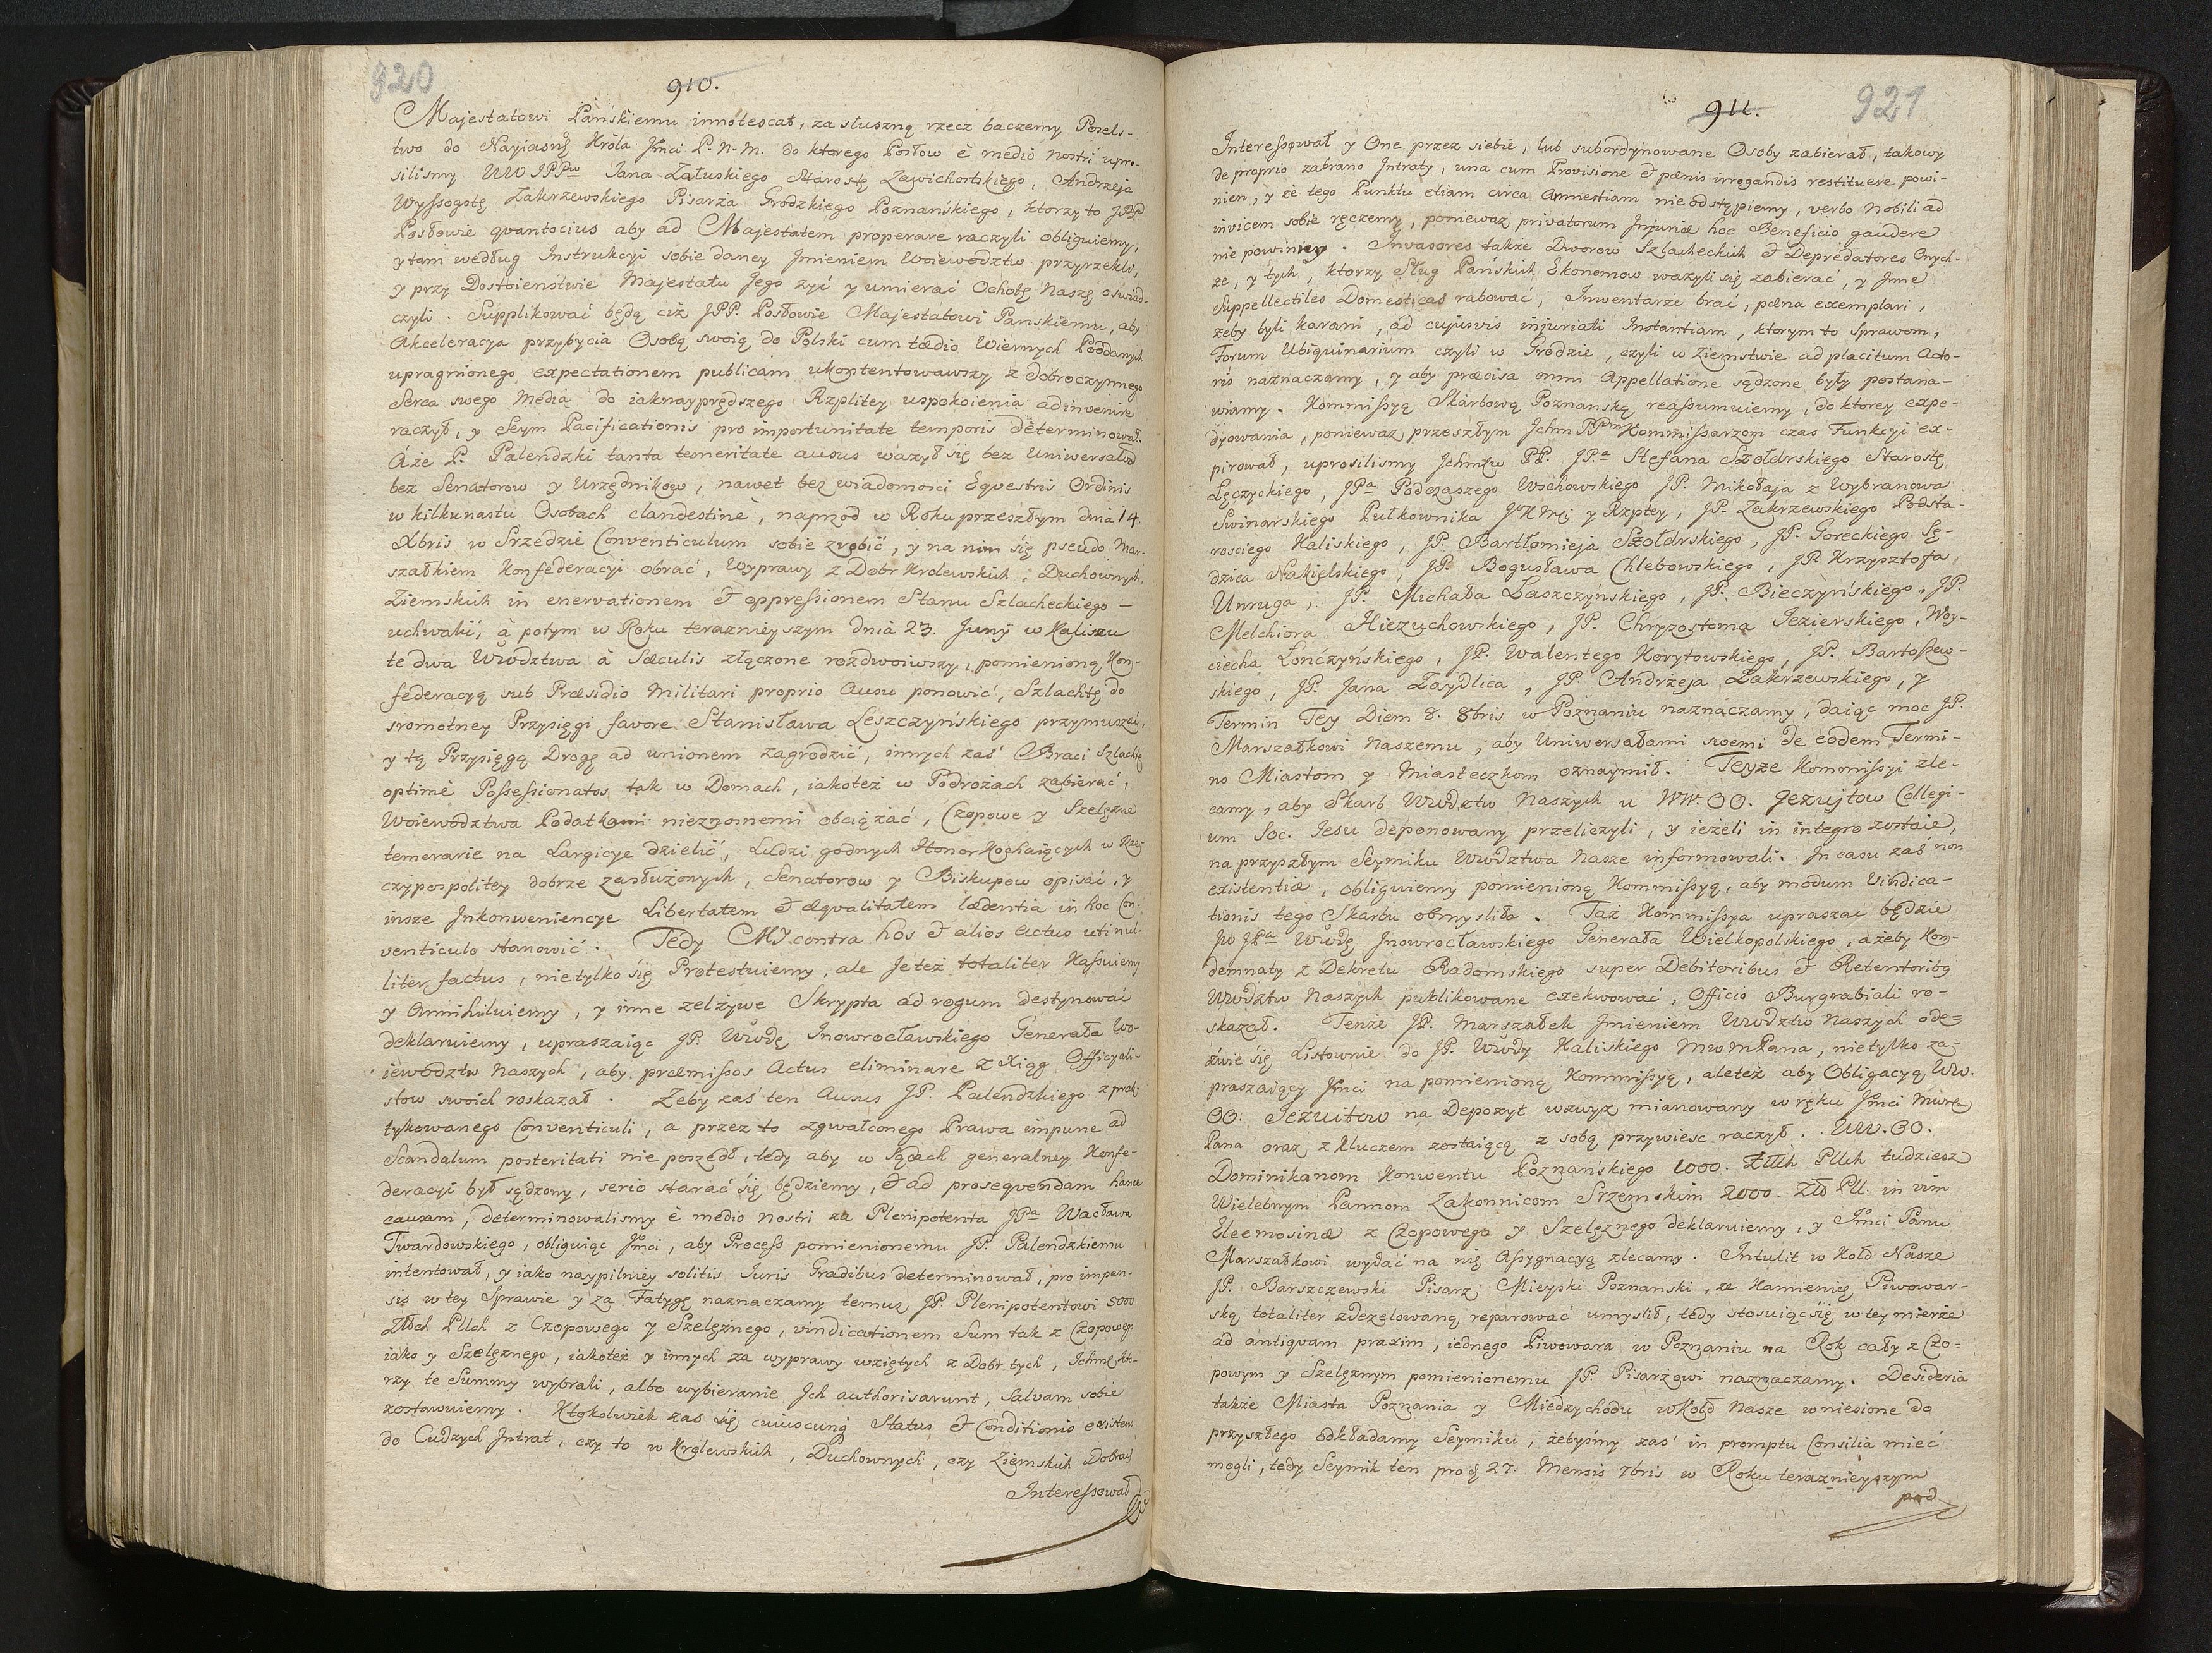 920
910.
Majestatowi Pańskiemu innotescat, za słuszną rzecz baczemy Posels-
two do Nayiasnỹ Króla Jmci P. N. M. do ktorego Posłow è medio nostri upro-
silismy WWJPPw Jana Załuskiego Starostę Zawichortskiego, Andrzeja
Wyssogotę Zakrzewskiego Pisarza Grodzkiego Poznańskiego, ktorzy to JPP
Posłowie quantocius aby ad Majestatem properare raczyli obliguiemy,
y tam według Instrukcyi sobie daney Jmieniem Woiewództw przyrzekli,
y przy Dostoieństwie Majestatu Jego zyć y umierać Ochotę Naszę oswiad-
czyli. Supplikować będą ciż JPP. Posłowie Majestatowi Panskiemu, aby
Akceleracya przybycia Osobą swoią do Polski cum tædio Wiernych Poddanych
upragnionego expectationem publicam ukontentowawszy z dobroczynnego
Serca swego Media do iaknayprędszego Rzplitey uspokoienia adinvenire
raczył, y Seym Pacificationis pro importunitate temporis determinował.
Aże P. Palendzki tanta temeritate ausus ważył się bez Uniwersałow
bez Senatorow y Urzędnikow, nawet bez wiadomosci Equestris Ordinis
w kilkunastu Osobach clandestinè, naprzod w Roku przeszłym dnia 14.
Xbris w Srzedzie Conventiculum sobie zrobić, y na nim się pseudo Mar-
szałkiem Konfederacyi obrać, Wyprawy z Dobr Krolewskich, Duchownych
Ziemskich in enervationem & oppressionem Stanu Szlacheckiego -
uchwalić, à potym w Roku teraznieyszym dnia 23. Junÿ w Kaliszu
te dwa Wwodztwa à Sæculis złączone rozdwoiwszy, pomienioną Kon-
federacyą sub Præsidio Militari proprio Ausu ponowić, Szlachtę do
sromotney Przysięgi favore Stanisława Leszczyńskiego przymuszać,
y tą Przysięgą Drogę ad unionem zagrodzić, innych zaś Braci Szlachtę
optimè Possessionatos tak w Domach, iakoteż w Podrożach zabierać,
Woiewodztwa Podatkami nieznośnemi obciążać, Czopowe y Szelężne
temerarie na Largicye dzielić, Ludzi godnych Honor Kochaiących w Rze-
czypospolitey dobrze zasłużonych, Senatorow y Biskupow opisać, y
insze Jnkonweniencye Libertatem & æqualitatem lædentia in hoc Con-
venticulo stanowić. Tedy MY contra hos & alios Actus uti nul-
liter factus, nietylko się Protestuiemy, ale Je też totaliter Kassuiemy
y Annihiluiemy, y inne zelżywe Skrypta ad rogum destynować
deklaruiemy, upraszaiąc JP. Wwdę Jnowrocławskiego Generała Wo-
iewodztw Naszych, aby præmissos Actus eliminare z Xiąg Officyali-
stow swoich roskazał. Żeby zaś ten Ausus JP. Palendzkiego z prak-
tykowanego Conventiculi, a przez to zgwałconego Prawa impune ad
Scandalum posteritati nie poszedł, tedy aby w Sądach generalney Konfe-
deracyi był sądzony, serio starać się będziemy, & ad prosequendam hance
causam, determinowalismy è medio nostri za Plenipotenta JPa Wacława
Twardowskiego, obliguiąc Jmci, aby Process pomienionemu JP. Palendzkiemu
intentował, y iako naypilniey solitis Juris Gradibus determinował, pro impen-
sis w tey Sprawie y za Fatygę naznaczamy temuż JP. Plenipotentowi 5000.
Złłch Pllch z Czopowego y Szelężnego, vindicationem Sum tak z Czopowego
iako y Szelęznego, iakoteż y innych za wyprawy wziętych z Dobr tych, Jchmć Kto-
rzy te Summy wybrali, albo wybieranie Jch authorisarunt, Salvam sobie
zostawuiemy. Ktokolwiek zas się cuiuscunq Status & Conditionis existens
do Cudzych Jntrat, czy to w Krolewskich, Duchownych, czy Ziemskich Dobrach
Interessował
921
911.
Interessował y One przez siebie, lub subordynowane Osoby zabierał, takowy
de proprio zabrano Jntraty, una cum Provisione & pænis irrogandis restituere powi-
nien, y że tego Punktu etiam circa Amnestiam nie odstąpiemy, verbo Nobili ad
invicem sobie ręczemy, poniewaz privatorum Jnjuriæ hoc Beneficio gaudere
nie powinny. Jnvasores także Dworow Szlacheckich & Deprædatores Onych-
że, y tych, ktorzy Sług Pańskich Ekonomow ważyli się zabierać, y Jnne
Suppellectiles Domesticas rabować, Jnwentarze brać, pæna exemplari,
żeby byli karani, ad cujusvis injuriati Jnstantiam, ktorym to Sprawom,
Forum Ubiquinarium czyli w Grodzie, czyli w Ziemstwie ad placitum Acto-
ris naznaczamy, y aby præcisa omni Appellatione sądzone były postana-
wiamy. Kommissyą Skarbową Poznanską reassumuiemy, do ktorey expe-
dyowania, poniewaz przeszłym Jchm PPm Kommissarzom czas Funkcyi ex-
pirował, uprosilismy Jchmćw PP. JPa Stefana Szołdrskiego Starostę
Lęczyckiego, JPa Podczaszego Wschowskiego JP. Mikołaja z Wybranowa
Swinarskiego Pułkownika JKMci y Rzptey, JP. Zakrzewskiego Podsta-
rosciego Kaliskiego, JP. Bartłomieja Szołdrskiego, JP. Goreckiego Sę-
dzica Nakielskiego, JP. Bogusława Chlebowskiego, JP. Krzysztofa
Unruga, JP. Michała Laszczyńskiego, JP. Bieczyńskiego, JP.
Melchiora Hiezuchowskiego, JP. Chryzostoma Jezierskiego, Woy-
ciecha Lonczyńskiego, JP. Walentego Korytowskiego, JP. Bartossew-
skiego, JP. Jana Zaydlica, JP. Andrzeja Zakrzewskiego, y
Termin Tey Diem 8. 8bris w Poznaniu naznaczamy, daiąc moc JP.
Marszałkowi Naszemu, aby Uniwersałami swemi de eodem Termi-
no Miastom y Miasteczkom oznaymił. Teyże Kommissyi zle-
camy, aby Skarb Wwdztw Naszych u WW. OO. Jezujtow Collegi-
um Soc. Jesu deponowany przeliczyli, y ieżeli in integro zostaie,
na przyszłym Seymiku Wwdztwa Nasze informowali. In casu zaś non
existentiæ, obliguiemy pomienioną Kommissyą, aby modum Vindica-
tionis tego Skarbu obmysliła. Taż Kommissya upraszać będzie
JW JPa Wwdę Jnowrocławskiego Generała Wielkopolskiego, ażeby Kon-
demnaty z Dekretu Radomskiego super Debitoribus & Retentoribq
Wwdztw Naszych publikowane exekwować, Officio Burgrabiali ro-
skazał. Tenże JP. Marszałek Jmieniem Wwdztw Naszych ode=
zwie się Listownie do JP. Wwdy Kaliskiego MwmPana, nietylko za-
praszaiący Jmci na pomienioną Kommissyą, aleteż aby Obligacyą WW.
OO. Jezuitow na Depozyt wzwyż mianowany w ręku Jmci Mwego
Pana oraz z Kluczem zostaiącą z sobą przywiesc raczył. WW. OO.
Dominikanom Konwentu Poznańskiego 1000. Złłch Pllch tudziesz
Wielebnym Pannom Zakonnicom Srzemskim 2000. Zł Pll. in vim
Eleemosinæ z Czopowego y Szelęznego deklaruiemy, y Jmci Panu
Marszałkowi wydać na nię Assygnacyą zlecamy. Intulit w Koło Nasze
JP. Barszczewski Pisarz Mieyski Poznanski, ze Kamienicę Piwowar-
ską totaliter zdezelowaną reparować umyslił, tedy stosuiąc się w tey mierze
ad antiquam praxim, iednego Piwowara w Poznaniu na Rok cały z Czo=
powym y Szelęznym pomienionemu JP. Pisarzowi naznaczamy. Desideria
także Miasta Poznania y Miedzychodu w Koło Nasze wniesione do
przyszłego odkładamy Seymiku, żebyśmy zaś in promptu Consilia mieć
mogli, tedy Seymik ten pro d 27. Mensis 7bris w Roku teraznieyszym
pod